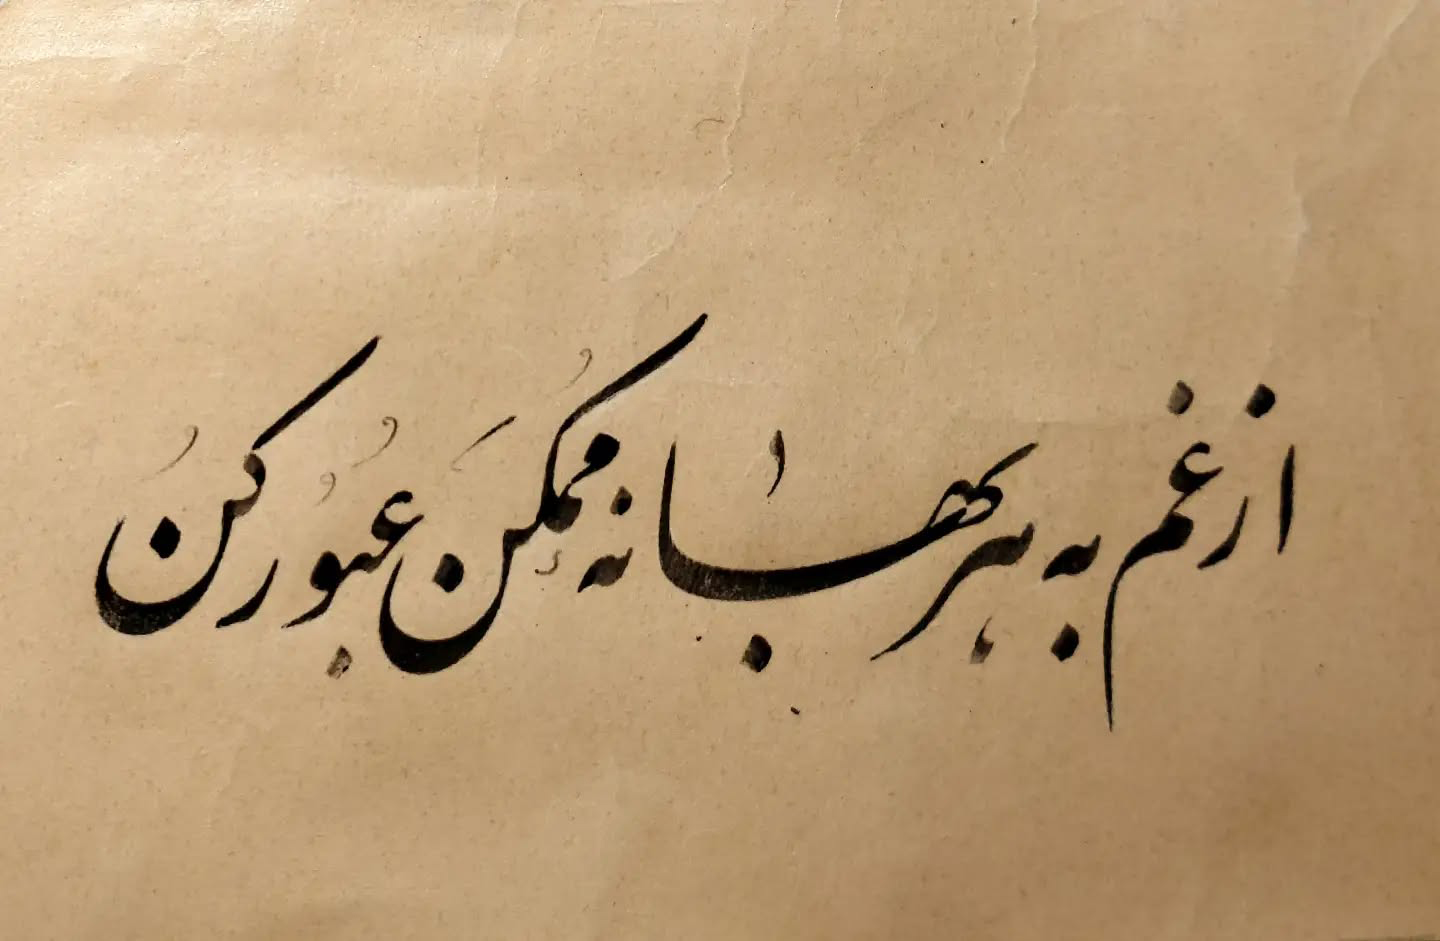 از غم به هر بهانه مُمکِنَ عُبُور کُن